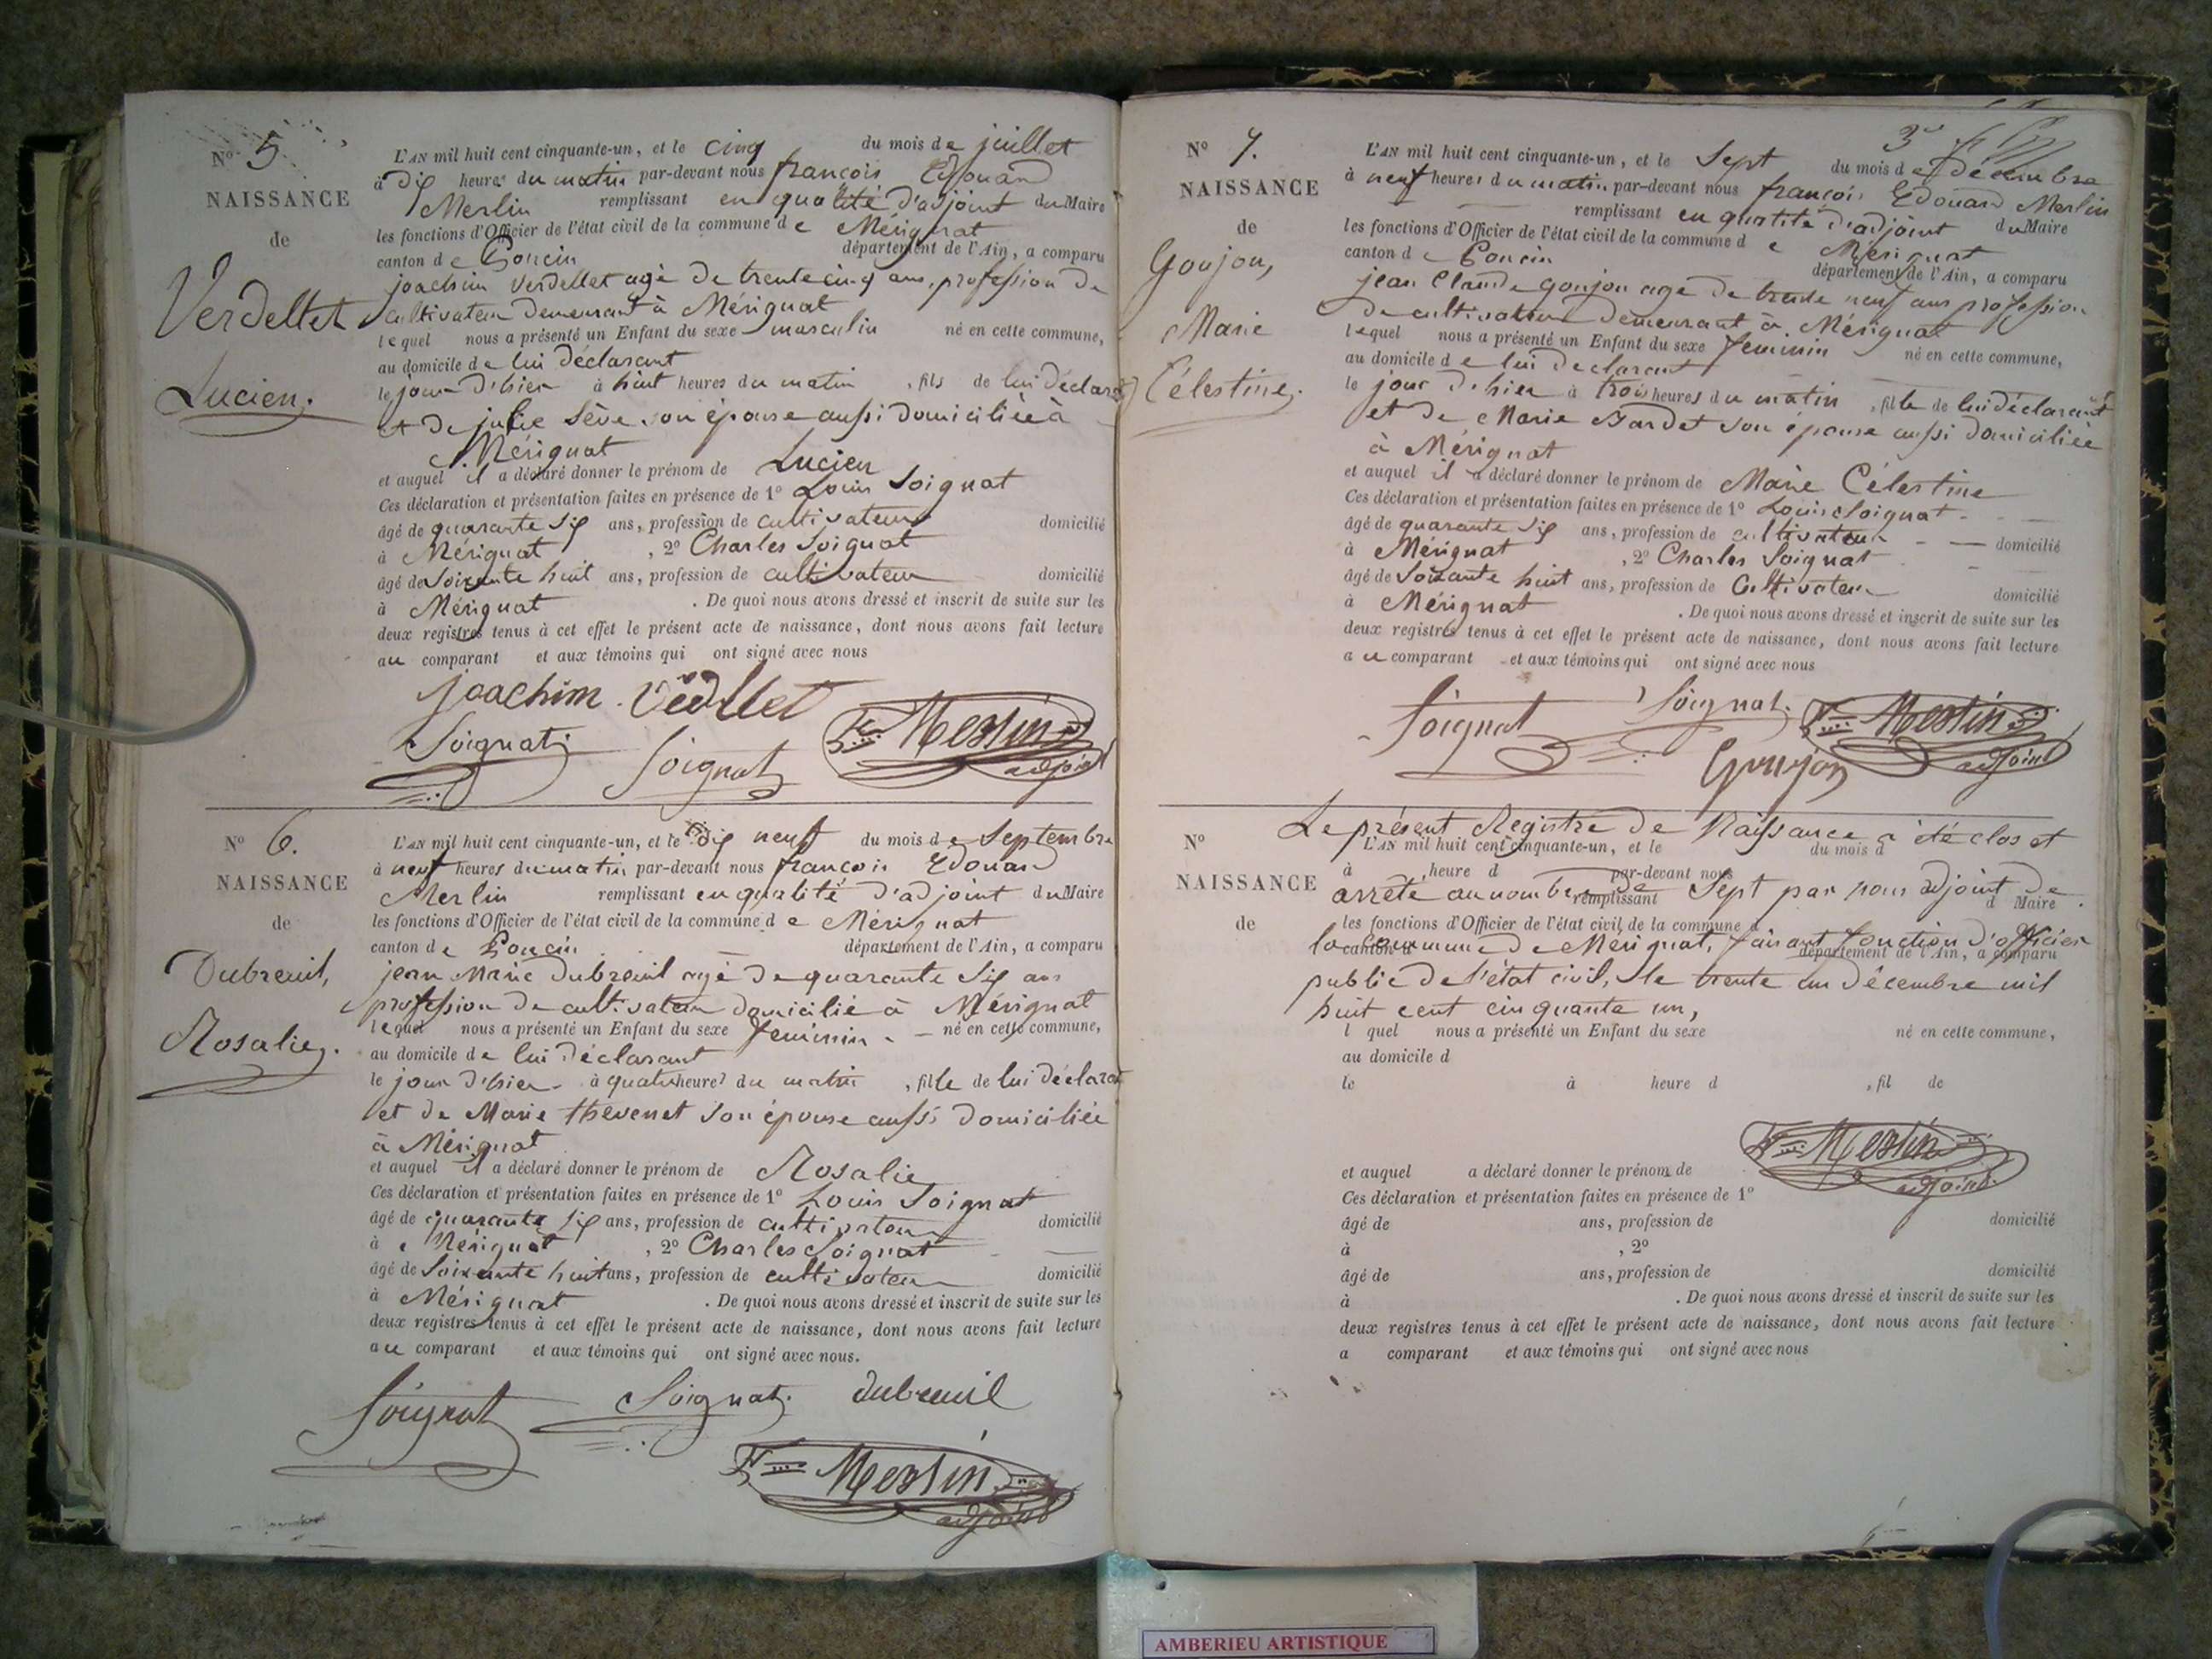 N° 5.
NAISSANCE
de
Verdellet
Lucien.
L'AN mil huit cent cinquante-un, et le cinq du mois de juillet
à dix heures du matin par-devant nous françois Edouard
Merlin remplissant en qualité d'adjoint du Maire
les fonctions d'Officier de l'état civil de la commune de Mérignat
canton de Poncin département de l'Ain, a comparu
joachim Verdellet agé de trente cinq ans, profession de
cultivateur demeurant à Mérignat
lequel nous a présenté un Enfant du sexe masculin né en cette commune,
au domicile de lui déclarant
le jour d'hier à huit heures du matin, fils de lui déclarant
et de julie Sève son épouse aussi domiciliée à
Mérignat
et auquel il a déclaré donner le prénom de Lucien
Ces déclaration et présentation faites en présence de 1° Louis Soignat
âgé de quarante six ans, profession de cultivateur domicilié
à Mérignat, 2° Charles Soignat
âgé de Soixante huit ans, profession de cultivateur domicilié
à Mérignat. De quoi nous avons dressé et inscrit de suite sur les
deux registres tenus à cet effet le présent acte de naissance, dont nous avons fait lecture
au comparant et aux témoins qui ont signé avec nous
joachim Vedllet
Soignat Soignat Merlin
adjoint
N° 6.
NAISSANCE
de
Dubreuil,
Rosalie.
L'AN mil huit cent cinquante-un, et le dix neuf du mois de Septembre
à neuf heures du matin par-devant nous françois Edouard
Merlin remplissant en qualité d'adjoint du Maire
les fonctions d'Officier de l'état civil de la commune de Mérignat
canton de Poncin département de l'Ain, a comparu
jean Marie dubreuil agé de quarante Six ans
profession de cultivateur domicilié à Mérignat
lequel nous a présenté un Enfant du sexe feminin né en cette commune,
au domicile de lui déclarant
le jour d'hier à quatre heures du matin, fille de lui déclarant
et de Marie thevenet son épouse aussi domiciliée
à Mérignat
et auquel il a déclaré donner le prénom de Rosalie
Ces déclaration et présentation faites en présence de 1° Louis Soignat
âgé de quarante six ans, profession de cultivateur domicilié
à Mérignat, 2° Charles Soignat
âgé de Soixante huit ans, profession de cultivateur domicilié
à Mérignat. De quoi nous avons dressé et inscrit de suite sur les
deux registres tenus à cet effet le présent acte de naissance, dont nous avons fait lecture
au comparant et aux témoins qui ont signé avec nous.
Soignat Soignat dubreuil
Merlin
adjoint
N° 7.
NAISSANCE
de
Goujon,
Marie
Célestine.
L'AN mil huit cent cinquante-un, et le Sept du mois de décembre
à neuf heures du matin par-devant nous françois Edouard Merlin
remplissant en qualité d'adjoint du Maire
les fonctions d'Officier de l'état civil de la commune de Mérignat
canton de Poncin département de l'Ain, a comparu
jean Claude goujon agé de trente neuf ans profession
de cultivateur demeurant à Mérignat
lequel nous a présenté un Enfant du sexe feminin né en cette commune,
au domicile de lui declarant
le jour d'hier à trois heures du matin, fille de lui déclarant
et de Marie Bardet son épouse aussi domiciliée
à Mérignat
et auquel il a déclaré donner le prénom de Marie Célestine
Ces déclaration et présentation faites en présence de 1° Louis Soignat
âgé de quarante six ans, profession de cultivateur domicilié
à Mérignat, 2° Charles Soignat
âgé de Soixante huit ans, profession de Cultivateur domicilié
à Mérignat. De quoi nous avons dressé et inscrit de suite sur les
deux registres tenus à cet effet le présent acte de naissance, dont nous avons fait lecture
au comparant et aux témoins qui ont signé avec nous
Soignat Soignat. Merlin
Goujon adjoint
N°
NAISSANCE
de
Le présent Registre de Naissance a été clos et
L'AN mil huit cent cinquante-un, et le du mois d
à heure d par-devant nous
arrêté au nombre de Sept par nous adjoint de
remplissant d Maire
les fonctions d'Officier de l'état civil de la commune d
la commune de Mérignat, faisant fonction d'officier
canton d département de l'Ain, a comparu
public de l'état civil, le trente un décembre mil
huit cent cinquante un,
l quel nous a présenté un Enfant du sexe né en cette commune,
au domicile d
le à heure d, fil de
Merlin
adjoint
et auquel a déclaré donner le prénom de
Ces déclaration et présentation faites en présence de 1°
âgé de ans, profession de domicilié
à, 2°
âgé de ans, profession de domicilié
à. De quoi nous avons dressé et inscrit de suite sur les
deux registres tenus à cet effet le présent acte de naissance, dont nous avons fait lecture
a comparant et aux témoins qui ont signé avec nous
AMBERIEU ARTISTIQUE